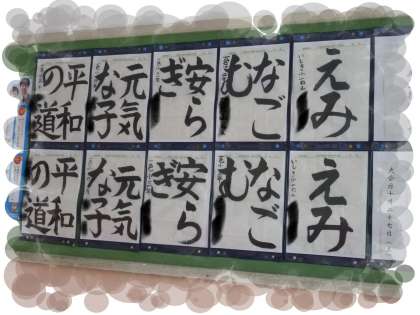 えみ
なご
む
安ら
ぎ
元気
な子
平和
の道
えみ
なご
む
安ら
ぎ
元気
な子
平和
の道